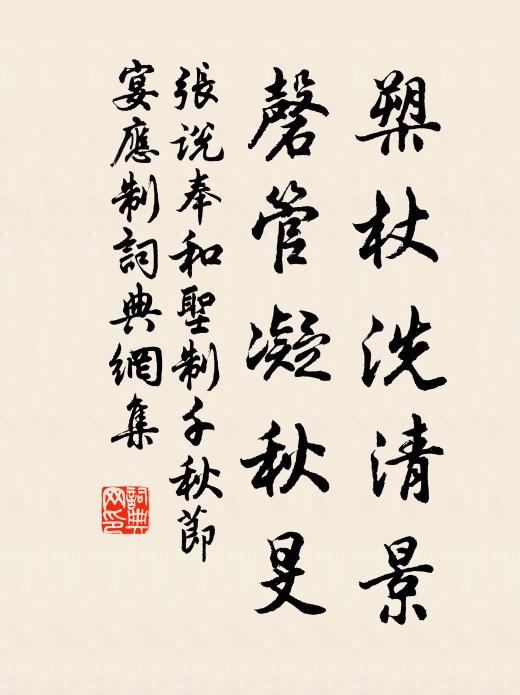 槊杖洗清景
磬管凝秋旻
張說奉和聖制千秋節
宴應制詞典網集
詞典
网印